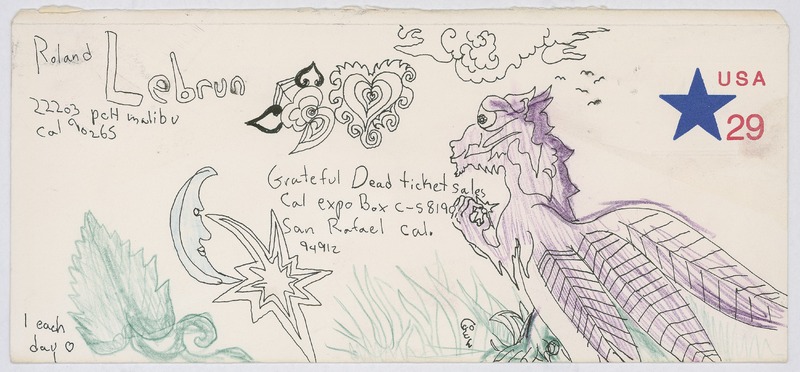 Roland Lebrun
22203 pcH malibu
Cal 90265
USA
29
Grateful Dead ticket sales
Cal expo Box C-S8190
San Rafael cal.
94912
1 each
day